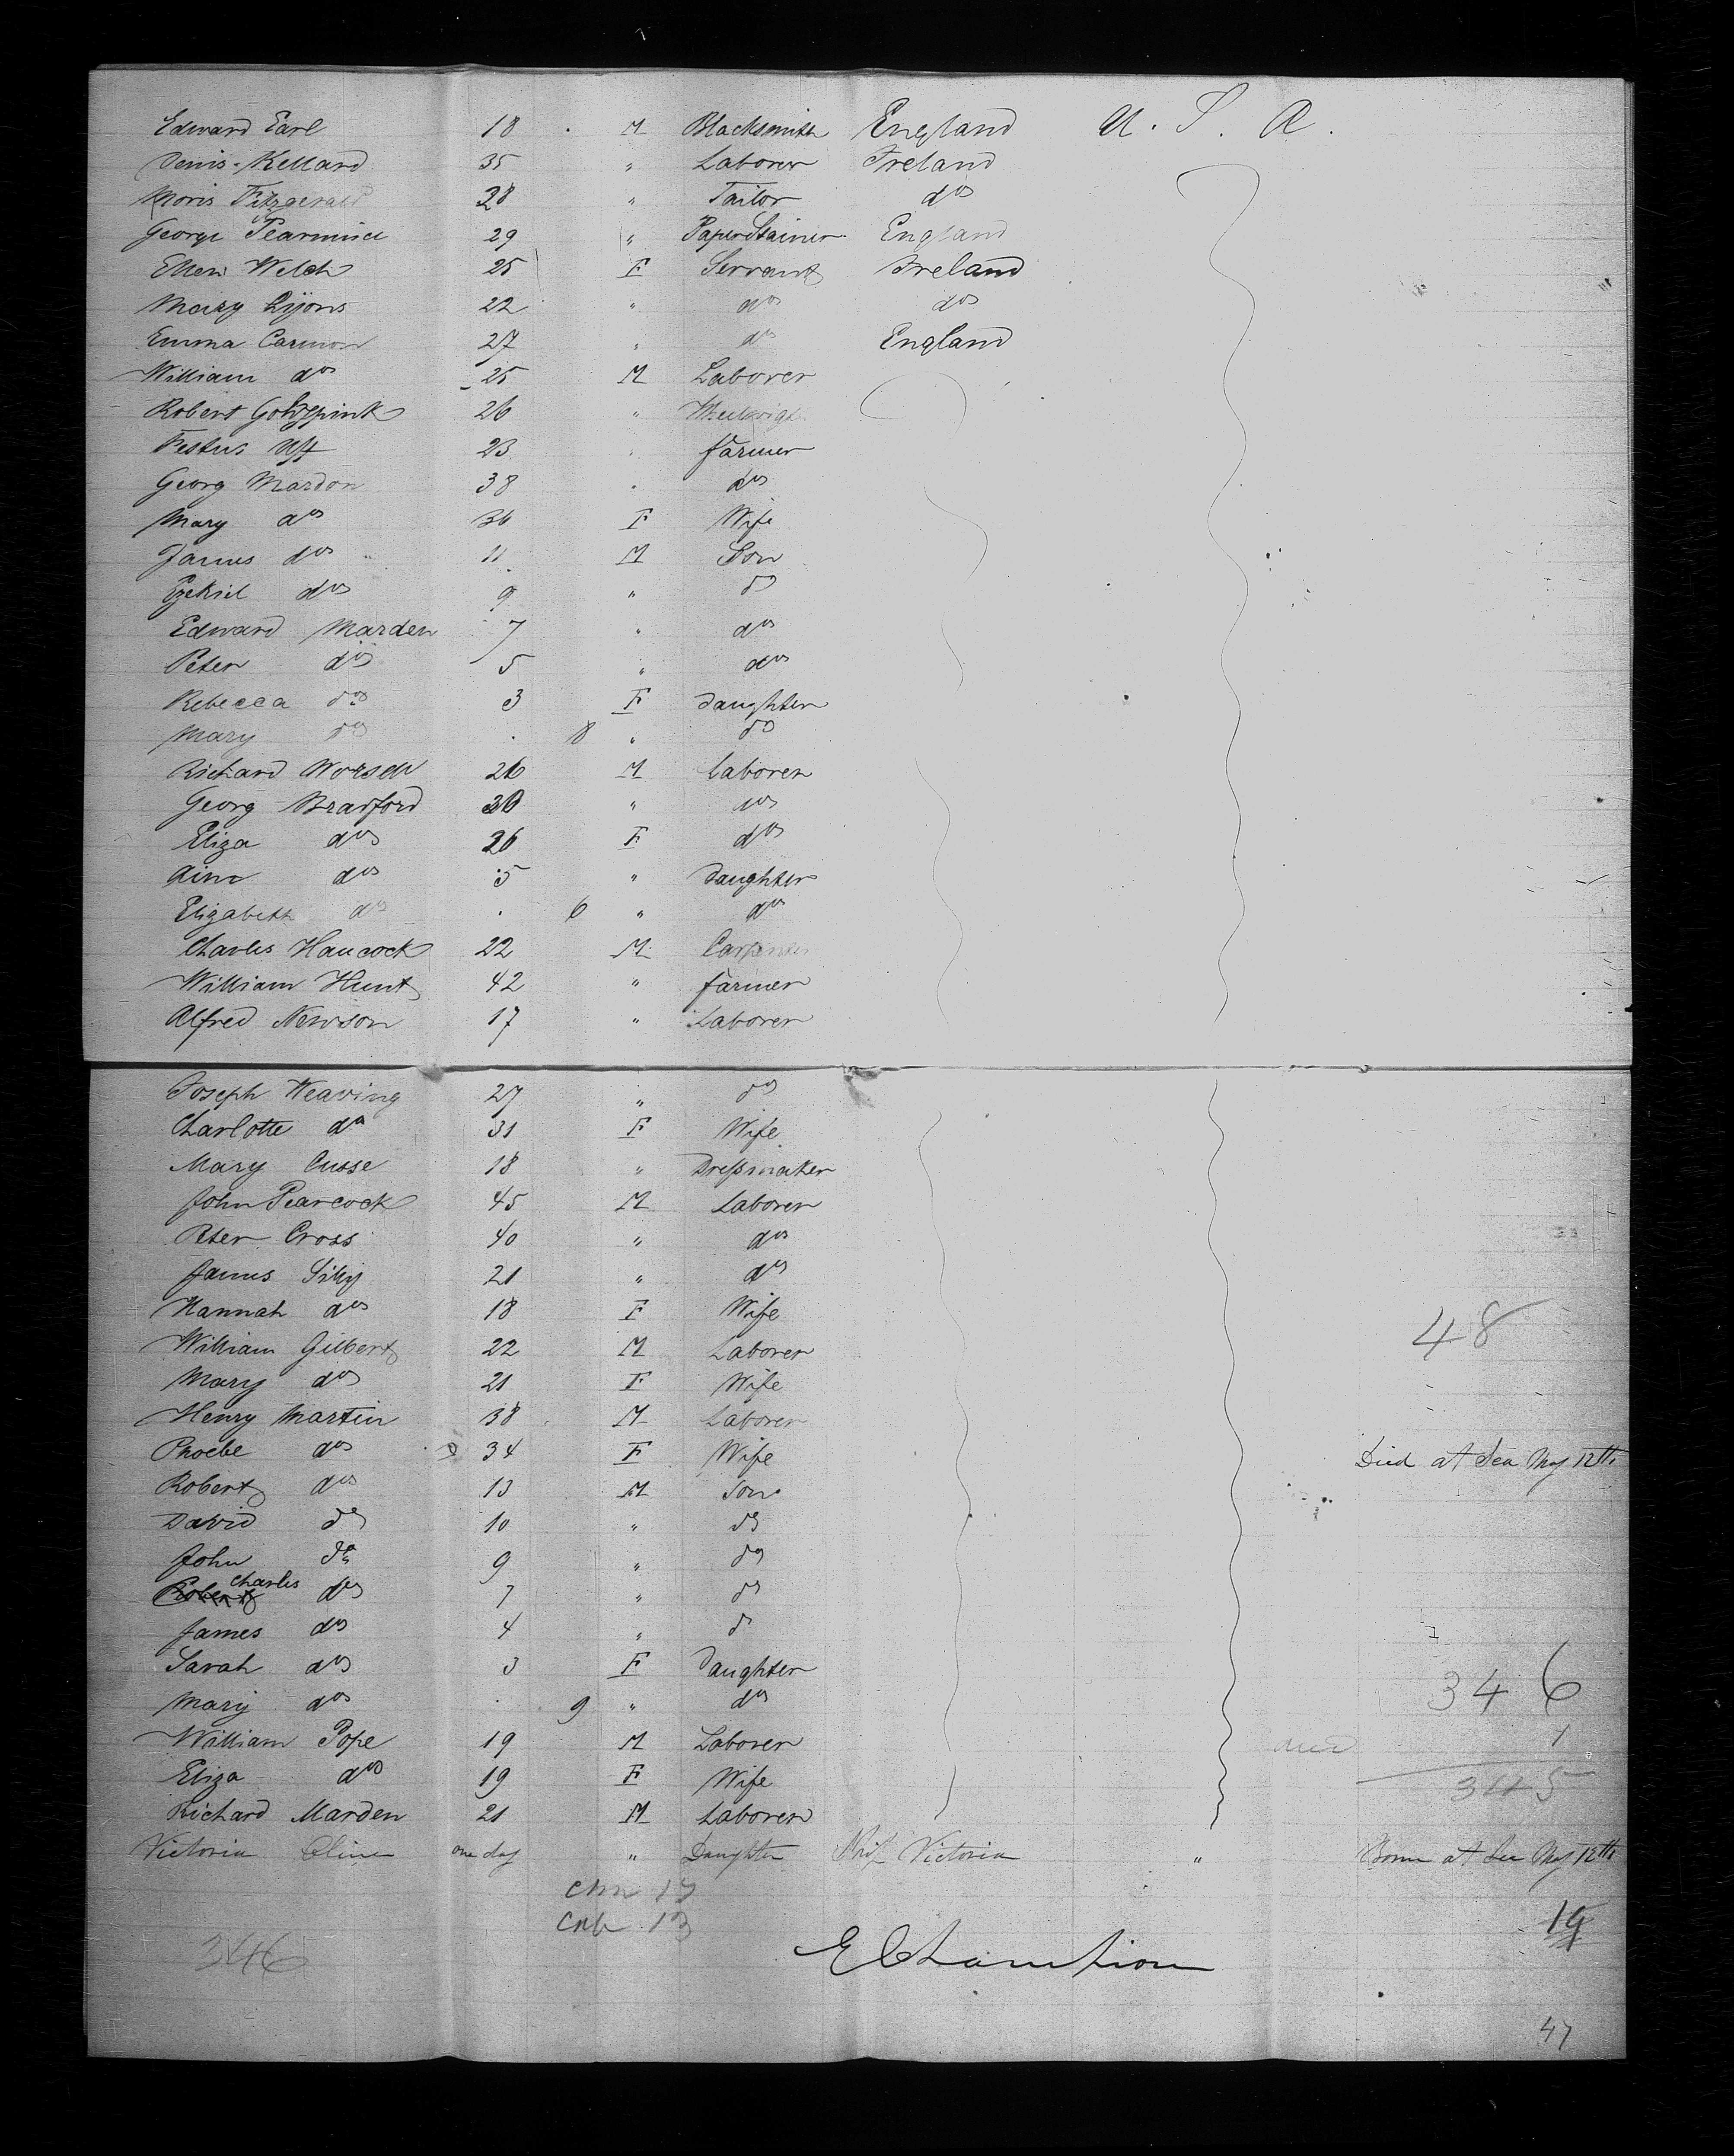 Edward Earl 18 M Blacksmith England U. S. A.
Denis Kellard 35 " Laborer Ireland
Moris Fitzgerald 28 " Tailor do
George Pearmine 29 " Paper Stainer England
Ellen Welch 25 F Servant Ireland
Mary Lyons 22 " do do
Emma Carmon 27 " do England
William do 25 M Laborer
Robert 26 "
Festus Uff 23 " farmer
Georg Mardon 38 " do
Mary do 36 F Wife
James do 11 M Son
Ezekiel do 9 " do
Edward Marden 7 " do
Peter do 5 " do
Rebecca do 3 F daughter
Mary do . 8 " do
Richard 26 M laborer
Georg Bradford 30 " do
Eliza do 26 F do
do 5 " Daughter
Elizabeth do . 6 " do
Charles Hancock 22 M Carpenter
William Hunt 42 " farmer
Alfred Newson 17 " Laborer
Joseph Weaving 27 " do
Charlotte do 31 F Wife
Mary Cusse 18 " Dressmaker
John Pearcock 45 M Laborer
Peter Cross 40 " do
James 21 " do
Hannah do 18 F Wife
William Gilbert 22 M Laborer 48
Mary do 21 F Wife
Henry Martin 38 M Laborer
Phoebe do 34 F Wife Died at Sea May 12th
Robert do 13 M Son
David do 10 " do
John do 9 " do
Charles
Robert do 7 " do
James do 4 " do
Sarah do 3 F Daughter
Mary do . 9 " do 346
William Pope 19 M Laborer died 1
Eliza do 19 F Wife 345
Richard Marden 21 M Laborer
Victoria Cline one day " Daughter Victoria " Born at Sea May 12th
13 19
346
47